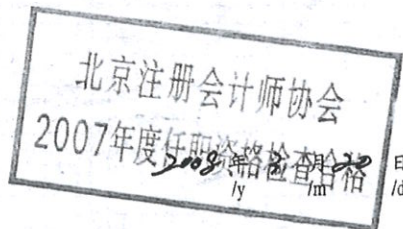 北京注册会计师协会
2007年度任职资格检查合格
2008年 月20日
/y /m /d